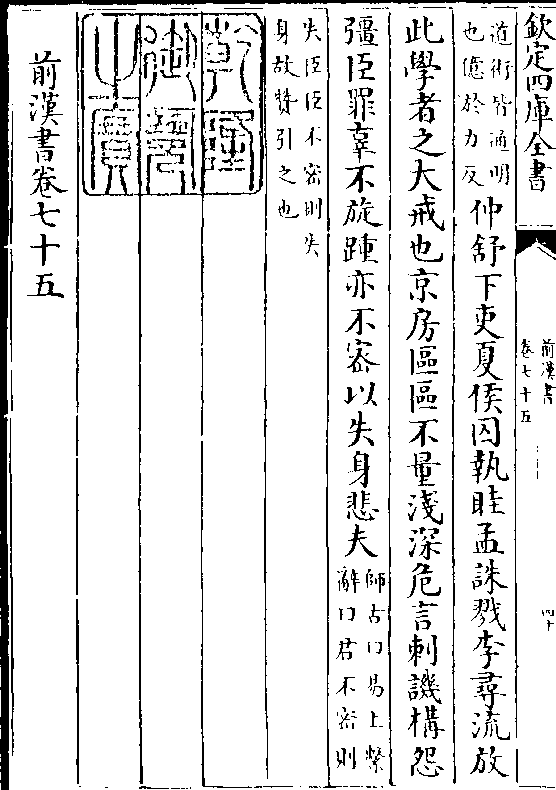 欽定四庫全書
前漢書
卷七十五
四十
道術皆通明
也億於力反
仲舒下吏夏侯囚執眭孟誅戮李尋流放
此學者之大戒也京房區區不量淺深危言刺譏構怨
彊臣罪辜不旋踵亦不密以失身悲夫
師古曰易上繫
辭曰君不密則
失臣臣不密則失
身故贊引之也
乾隆
御覽
之寶
前漢書卷七十五